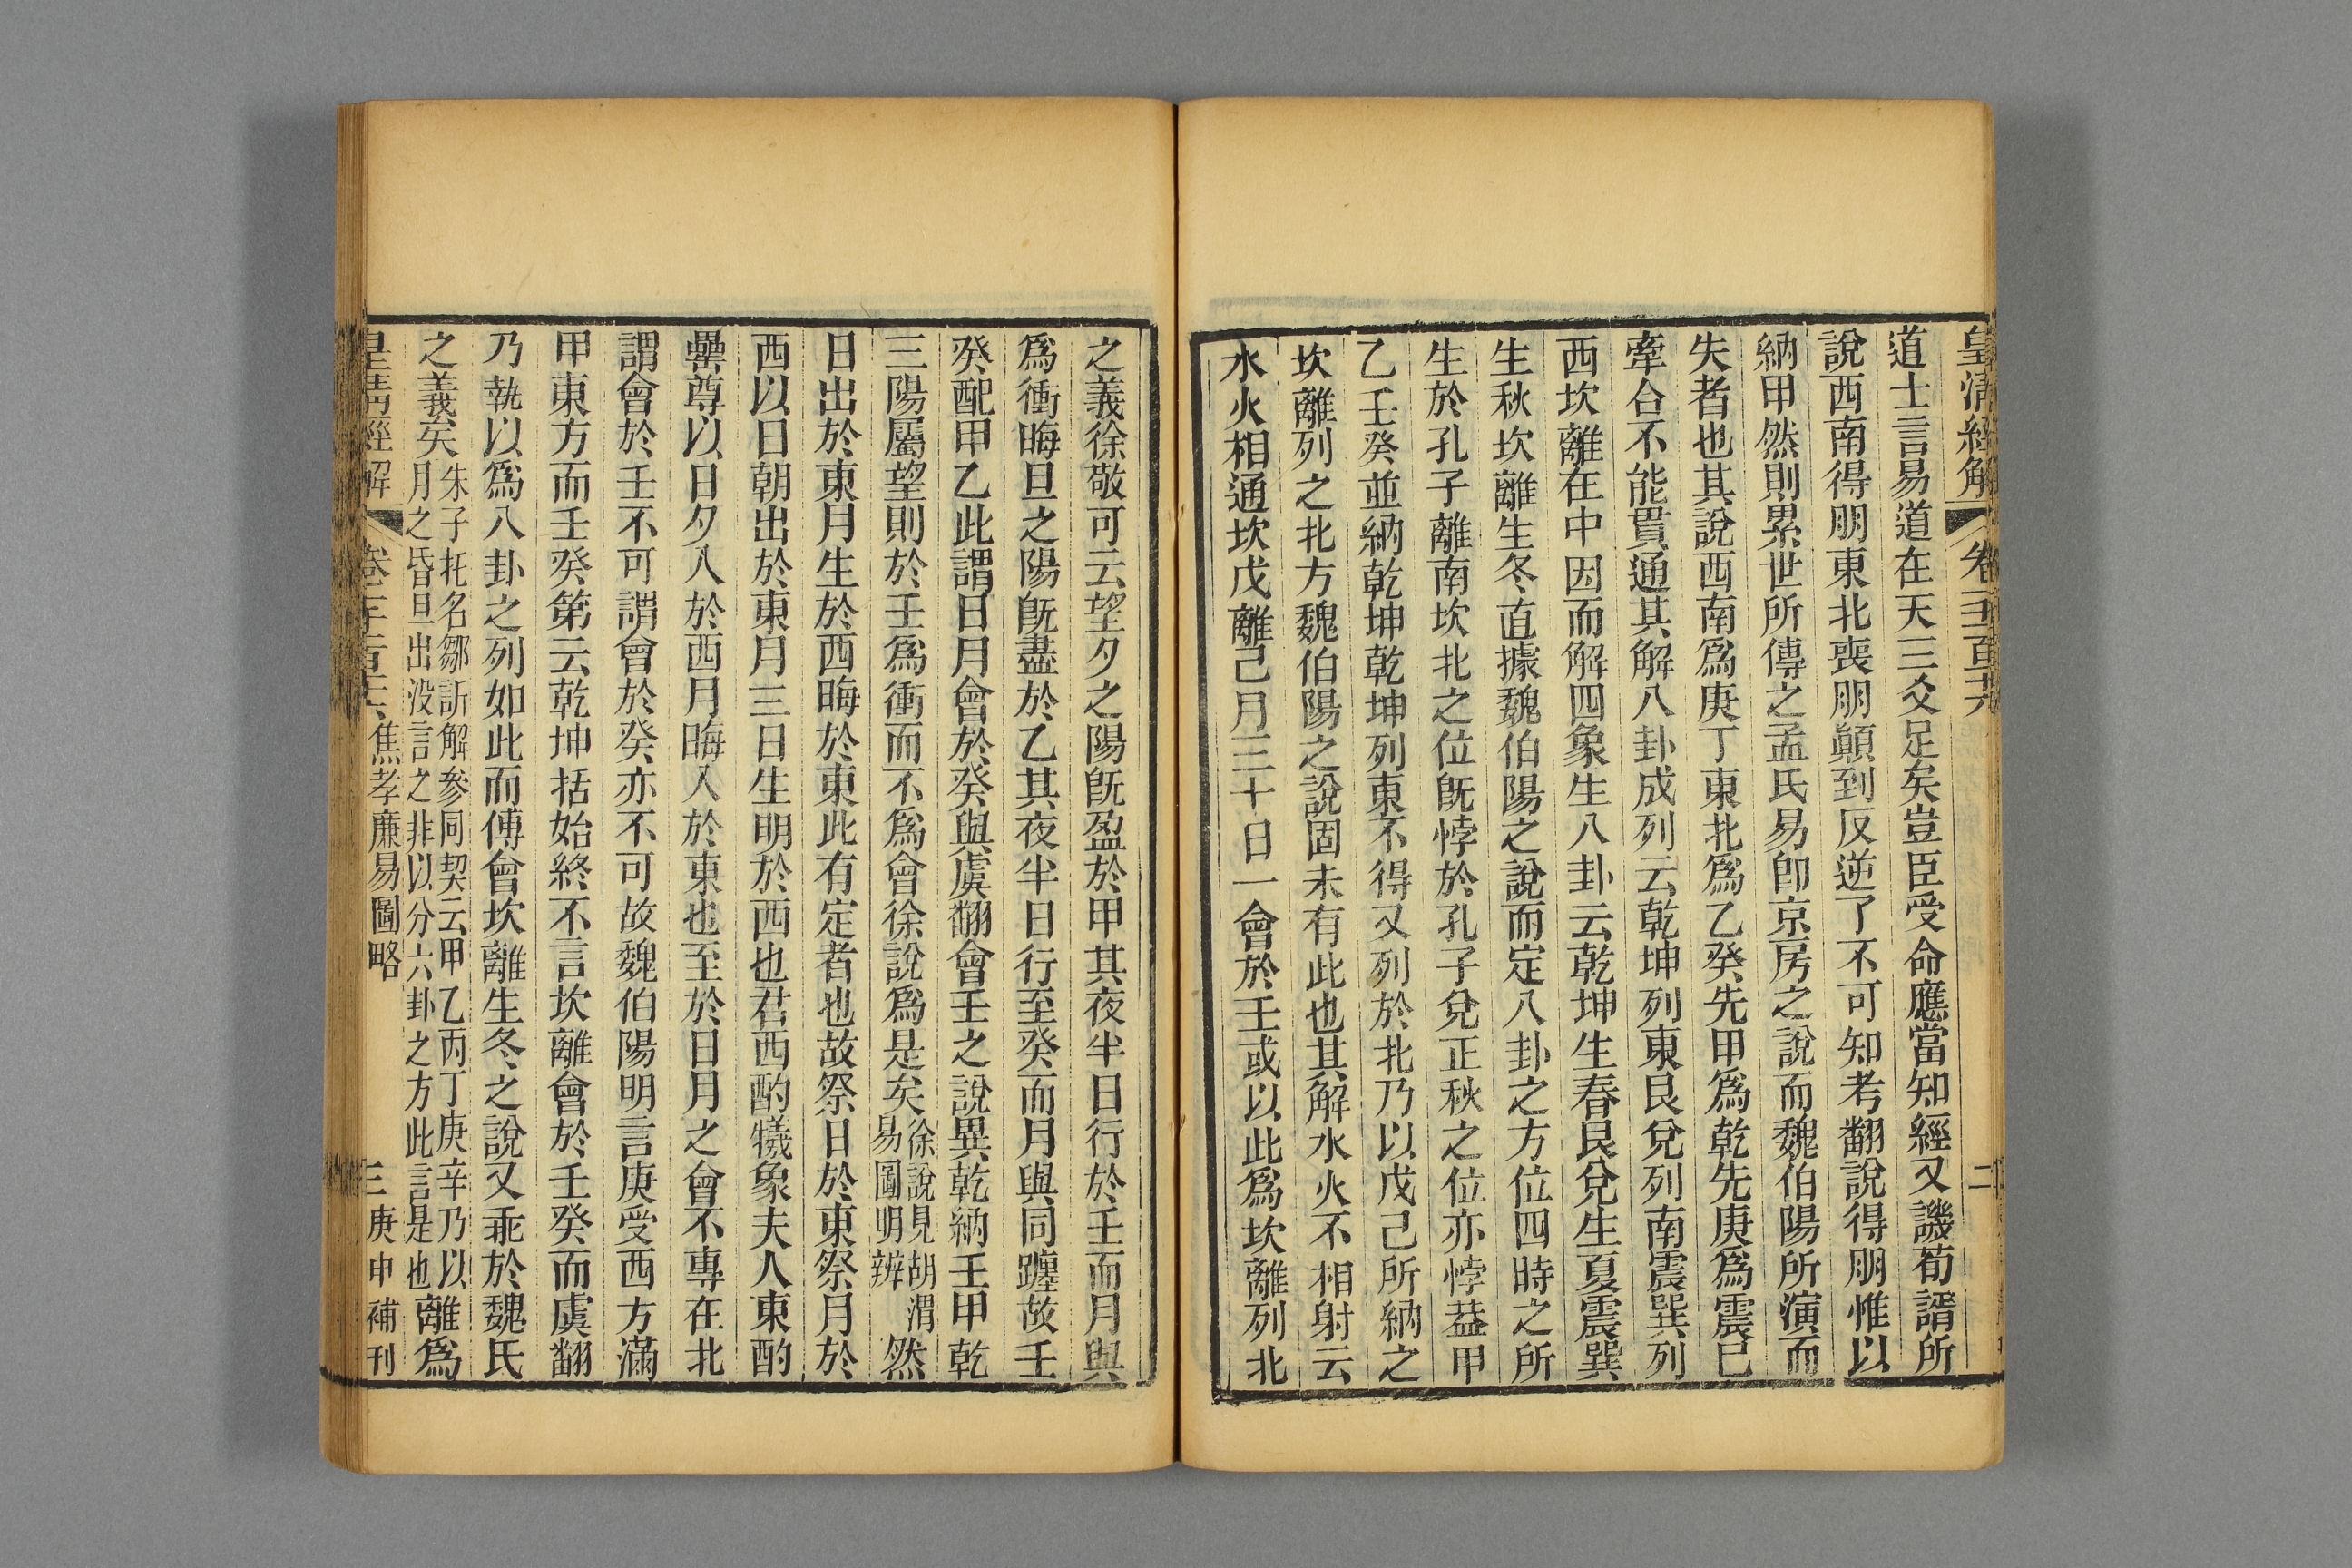 皇清經解 卷一千一百十六 二
道士言易道在天三爻足矣豈臣受命應當知經又譏荀諝所
說西南得朋東北喪朋顚到反逆了不可知考翻說得朋惟以
納甲然則累世所傳之孟氏易卽京房之說而魏伯陽所演而
失者也其說西南爲庚丁東北爲乙癸先甲爲乾先庚爲震已
牽合不能貫通其解八卦成列云乾坤列東艮兌列南震巽列
西坎離在中因而解四象生八卦云乾坤生春艮兌生夏震巽
生秋坎離生冬直據魏伯陽之說而定八卦之方位四時之所
生於孔子離南坎北之位旣悖於孔子兌正秋之位亦悖葢甲
乙壬癸並納乾坤乾坤列東不得又列於北乃以戊己所納之
坎離列之北方魏伯陽之說固未有此也其解水火不相射云
水火相通坎戊離己月三十日一會於壬或以此爲坎離列北
之義徐敬可云望夕之陽旣盈於甲其夜半日行於壬而月與
爲衝晦旦之陽旣盡於乙其夜半日行至癸而月與同躔故壬
癸配甲乙此謂日月會於癸與虞翻會壬之說異乾納壬甲乾
三陽屬望則於壬爲衝而不爲會徐說爲是矣徐說見胡渭易圖明辨然
日出於東月生於西晦於東此有定者也故祭日於東祭月於
西以日朝出於東月三日生明於西也君西酌犧象夫人東酌
罍尊以日夕入於西月晦入於東也至於日月之會不專在北
謂會於壬不可謂會於癸亦不可故魏伯陽明言庚受西方滿
甲東方而壬癸第云乾坤括始終不言坎離會於壬癸而虞翻
乃執以爲八卦之列如此而傅會坎離生冬之說又乖於魏氏
之義矣朱子托名鄒訢解參同契云甲乙丙丁庚辛乃以月之昏旦出沒言之非以分六卦之方此言是也離爲
皇清經解 卷一千一百十六 焦孝廉易圖略 三 庚申補刊